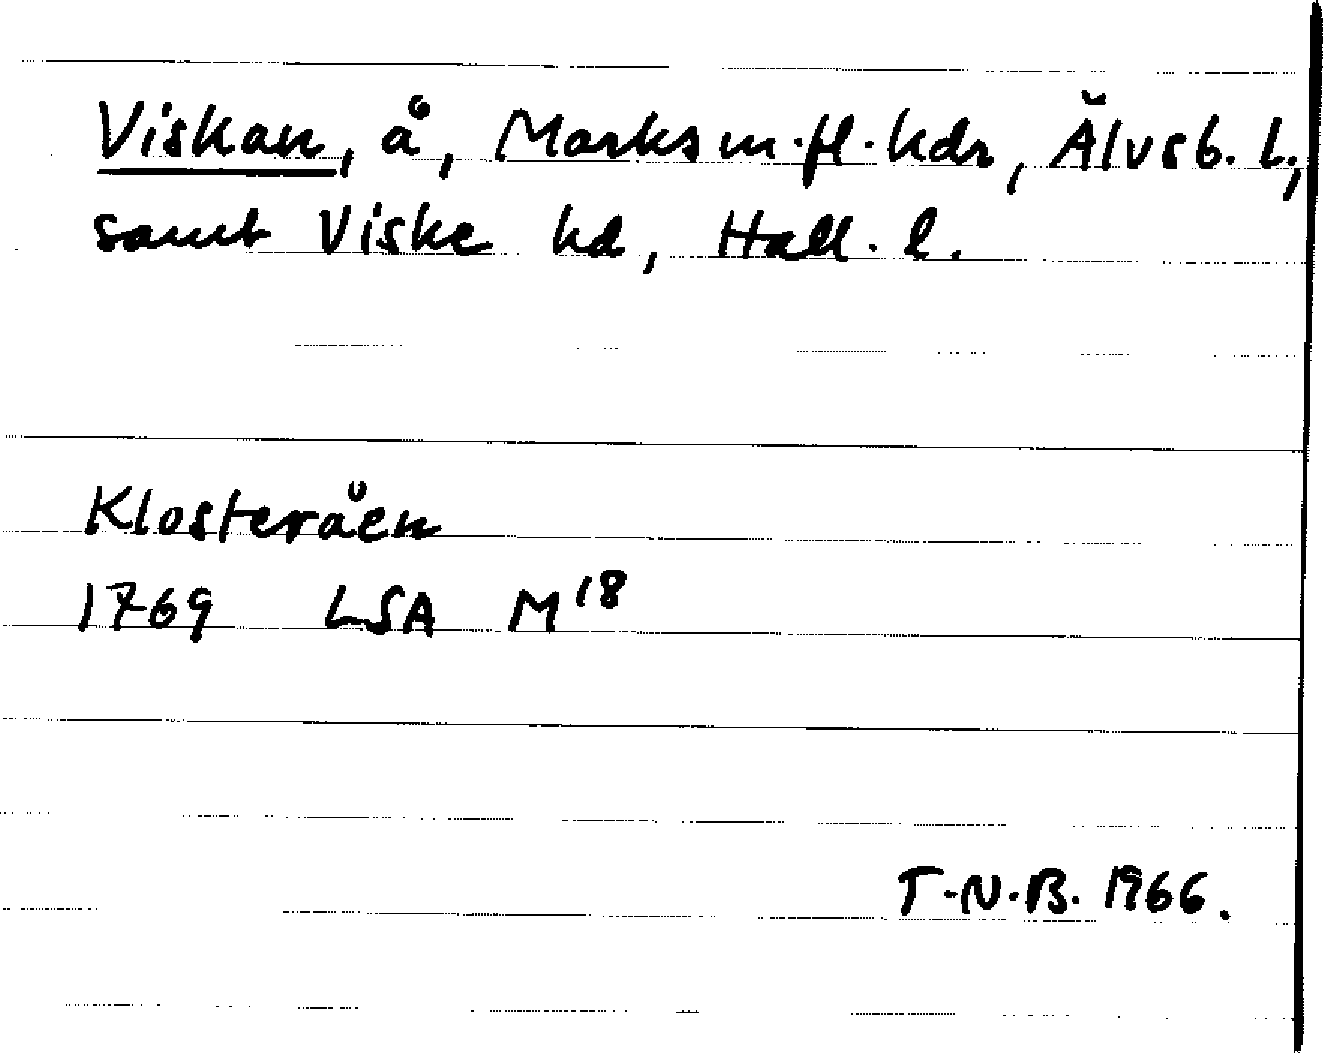 Viskan, å, Marks m.fl. hdr, Älvsb. l.,
samt Viske hd, Hall. l.
Klosteråen
1769 LSA M18
T.N.B. 1966.